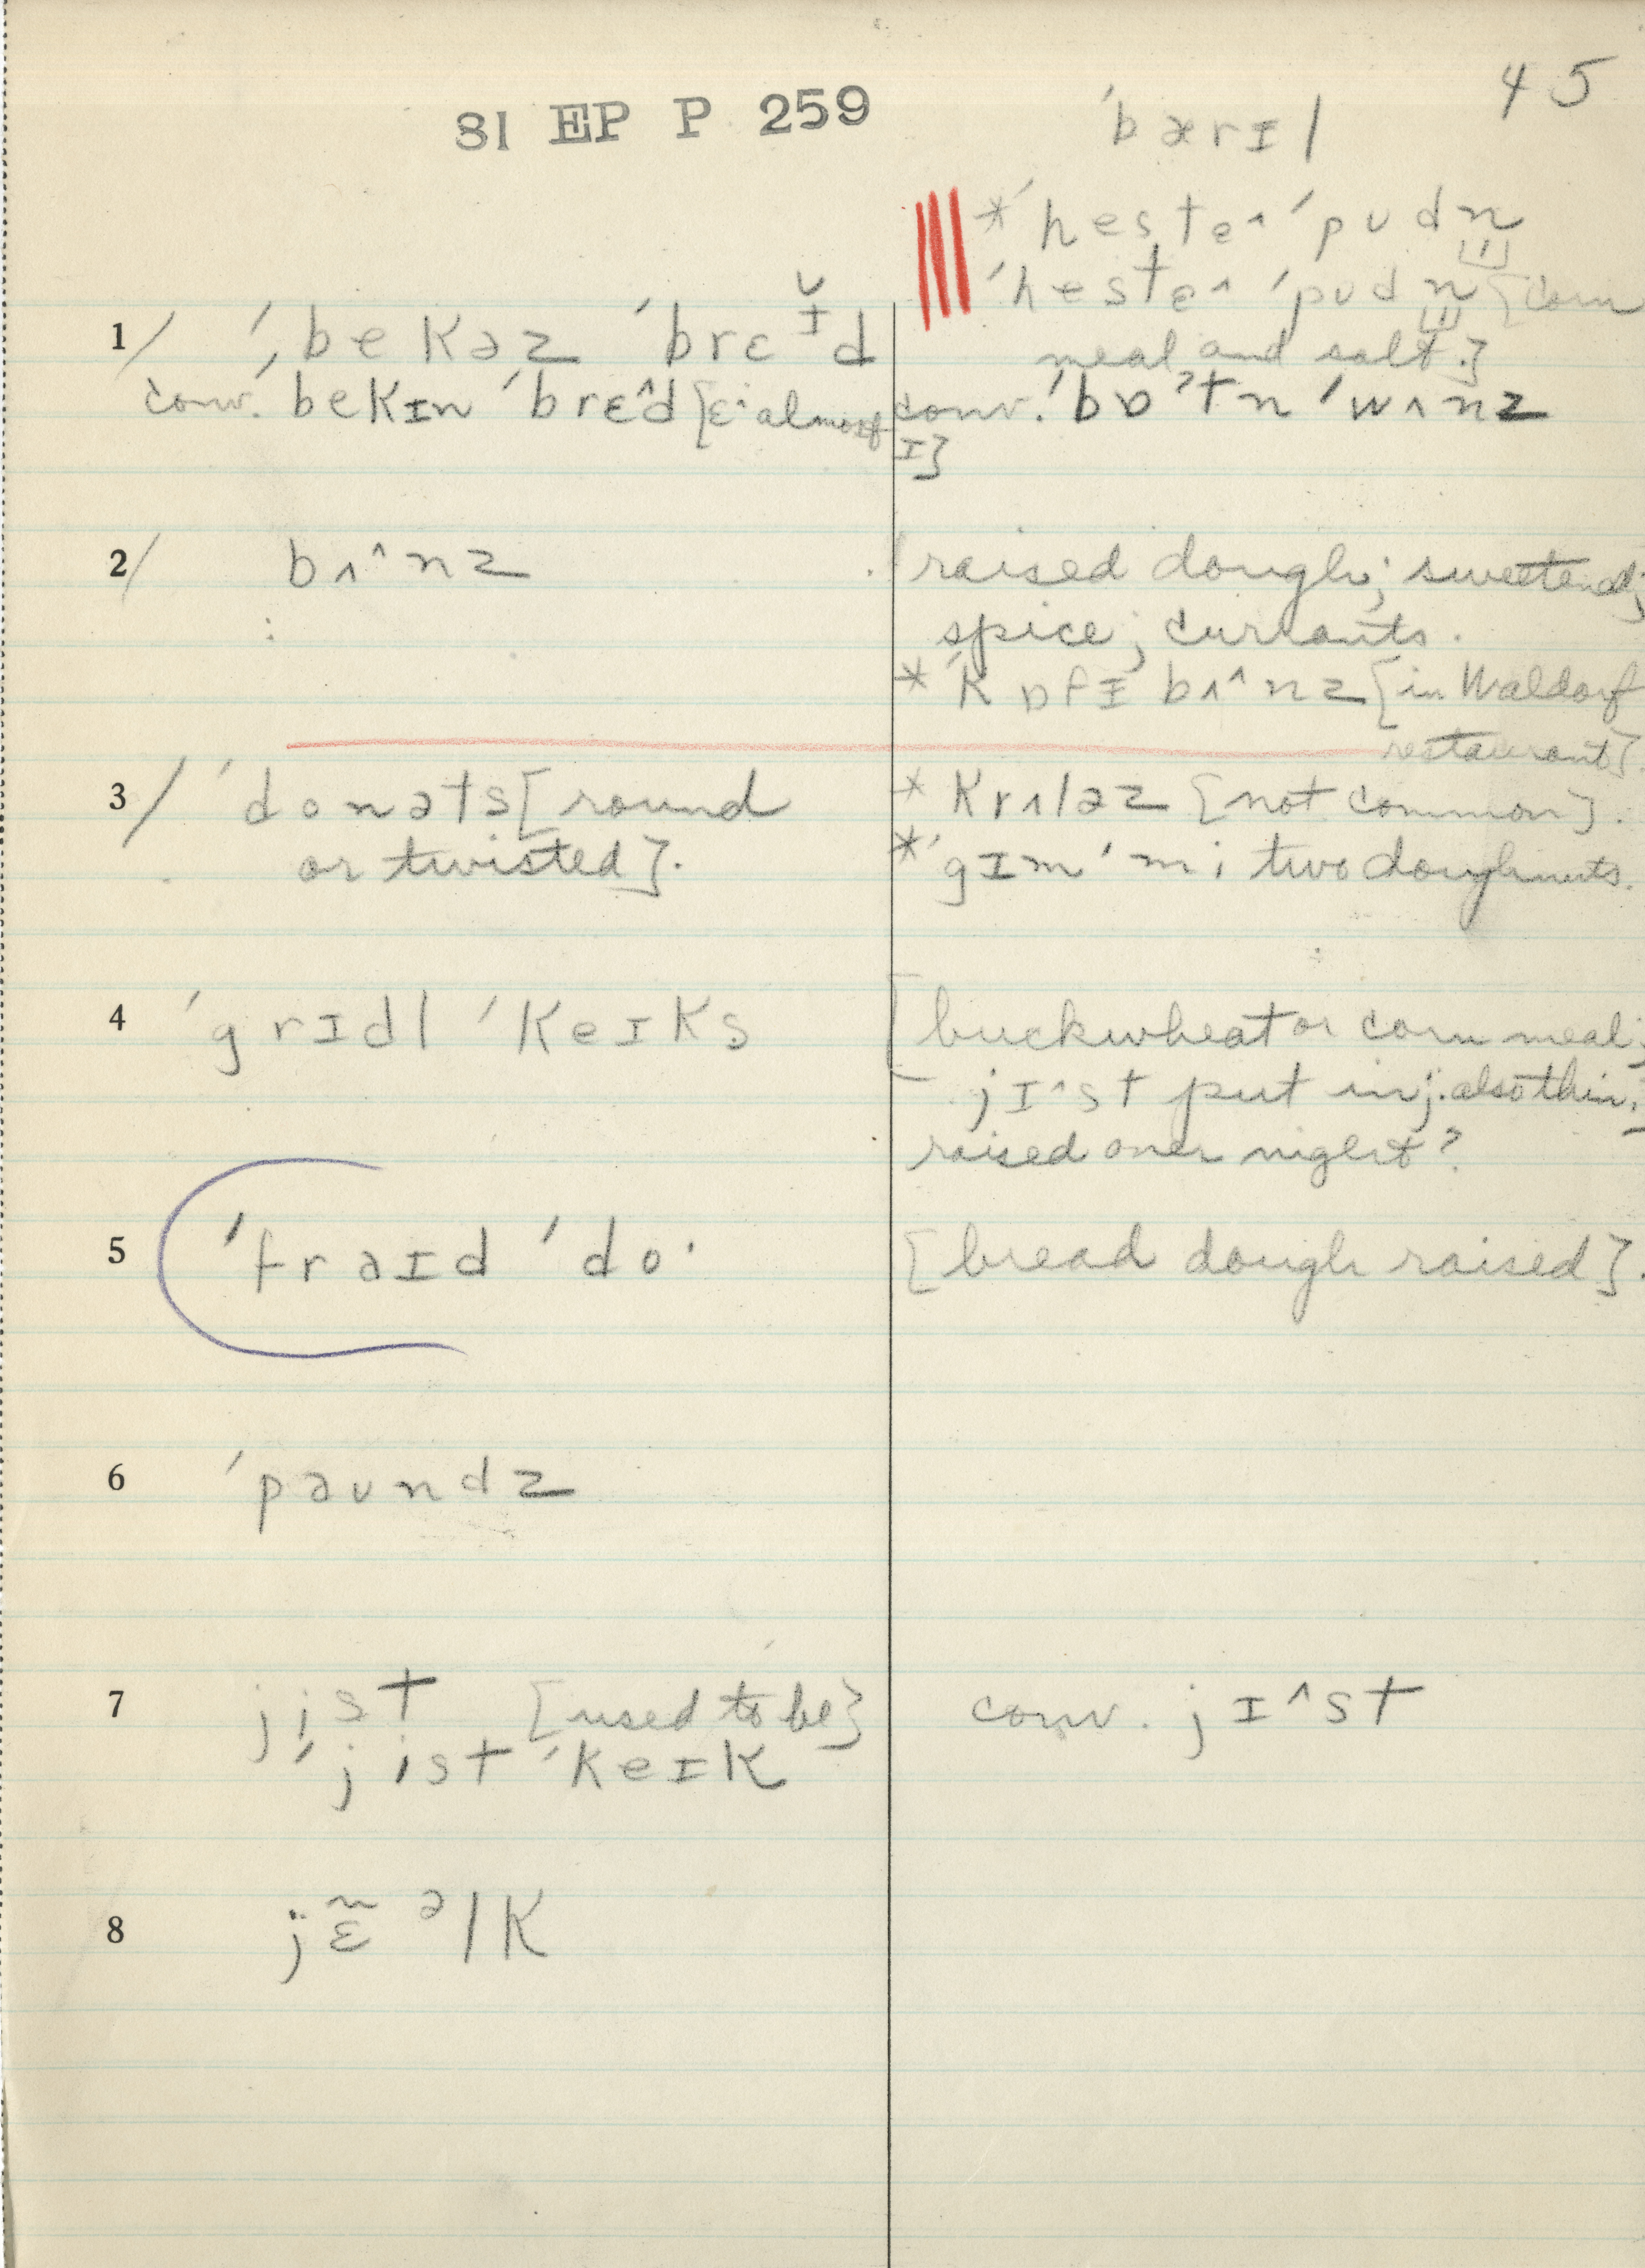 45
81 EP P 259
ˈbærɪl
* ˈhestɐ^ ˈpʊdn
ˈhestɛ^ ˈpʊdn [corn
meal and salt.]
1/ ˈˌbekəz ˈbrɛɪ̆d
conv. ˈbekɪn ˈbrɛ^d [ɛ^ almost ɪ]
conv. ˈbɒˀtn ˈwʌnz
2/ bʌ^nz
[raised dough; sweetened;
spice; currants.
* ˈkɒfɪ bʌ^nz [in Waldorf
restaurant].
3/ ˈdonəts [round
or twisted].
* krʌləz [not common].
* ˈgɪm ˈmi two doughnuts.
4 ˈgrɪdl ˈkeɪks
[buckwheat or corn meal;
jɪ^st put in; also thin;]
raised over night?
5 ˈfraɪd ˈdo·
[bread dough raised].
6 ˈpəʊndz
7 jist [used to be]
ˈjist ˈkeɪk
conv. jɪ^st
8 jɛ̃əlk